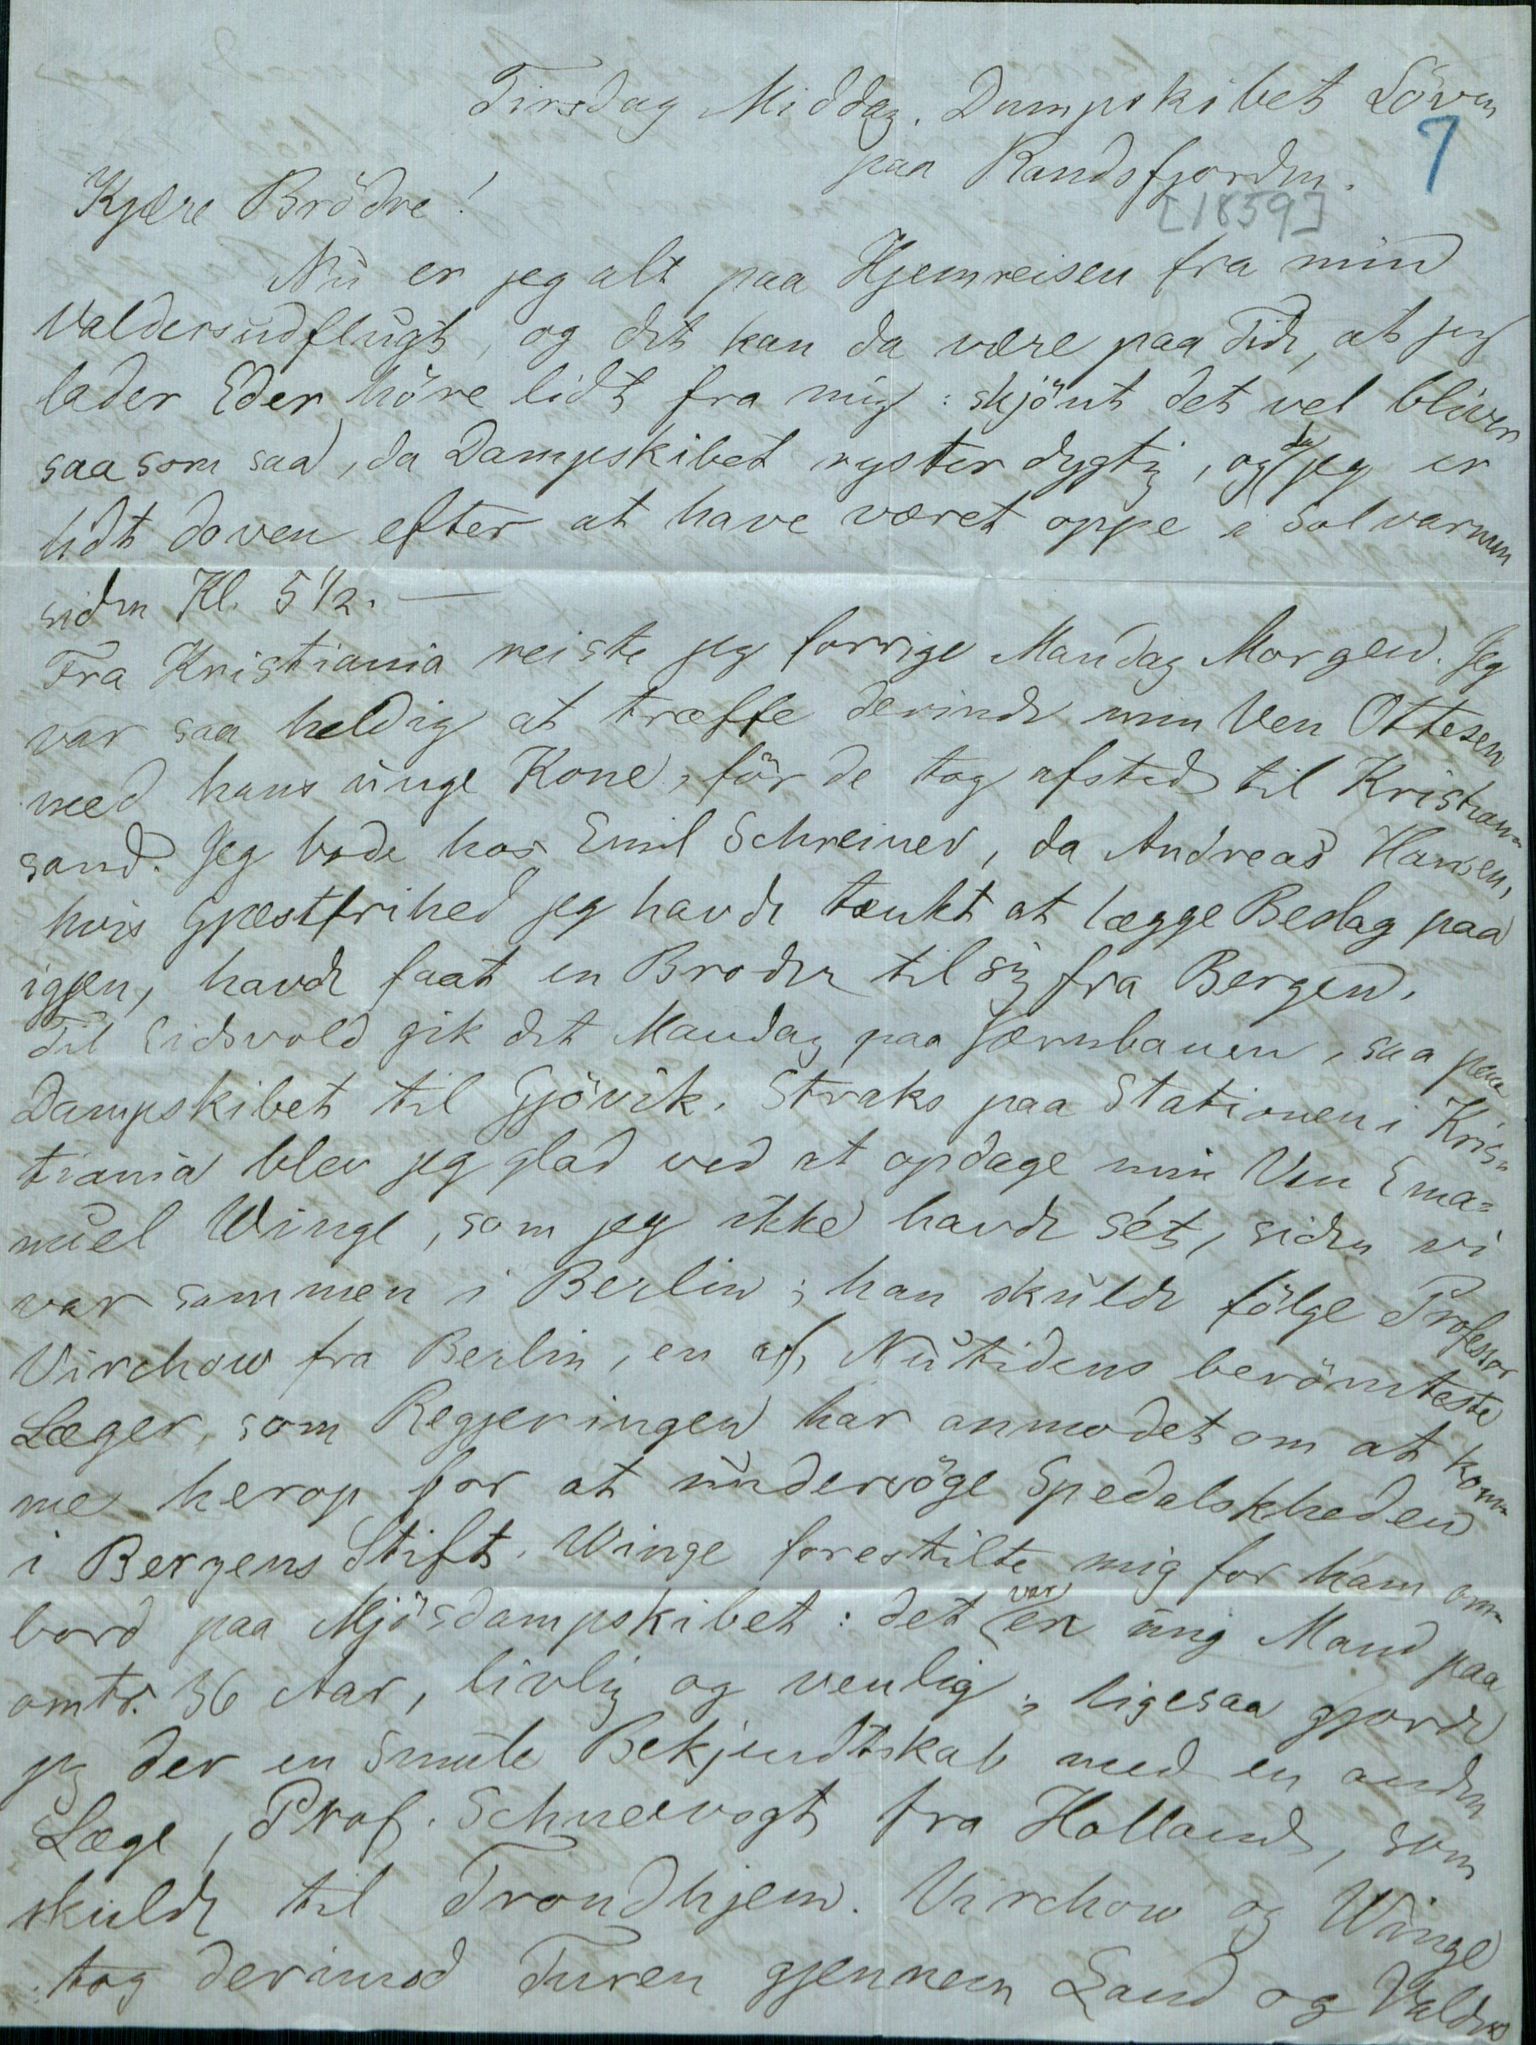 Tirsdag Middag. Dampskibet Löven
paa Randsfjorden.
7
[1859]
Kjære Brödre!
Nu er jeg alt paa Hjemreisen fra min
Valdersudflugt, og det kan da være paa Tide, at jeg
lader Eder höre lidt fra mig: skjönt det vel bliver
saa som saa, da Dampskibet ryster dygtig, og da jeg er
lidt doven efter at have været oppe i Solvarmen
siden Kl. 5 1/2. —
Fra Kristiania reiste jeg forrige Mandag Morgen. Jeg
var saa heldig at træffe derinde min Ven Ottesen
med hans unge Kone, för de tog afsted til Kristian-
sand. Jeg bode hos Emil Schreiner, da Andreas Hansen,
hvis Gjæstfrihed jeg havde tænkt at lægge Beslag paa
igjen, havde faat en Broder til sig fra Bergen.
Til Eidsvold gik det Mandag paa Jærnbanen, saa paa
Dampskibet til Gjövik. Straks paa Stationen i Kris-
tiania blev jeg glad ved at opdage min Ven Ema-
nuel Winge, som jeg ikke havde sét, siden vi
var sammen i Berlin; han skulde fölge Professor
Virchow fra Berlin, en af Nutidens berömteste
Læger, som Regjeringen har anmodet om at kom-
me herop for at undersöge Spedalskheden
i Bergens Stift. Winge forestilte mig for ham om-
bord paa Mjösdampskibet: det var en ung Mand paa
omtr. 36 Aar, livlig og venlig; ligesaa gjorde
jeg der en Smule Bekjendtskab med en anden
Læge, Prof. Schneevogt fra Holland, som
skulde til Trondhjem. Virchow og Winge
tog derimod Turen gjennem Land og Valders